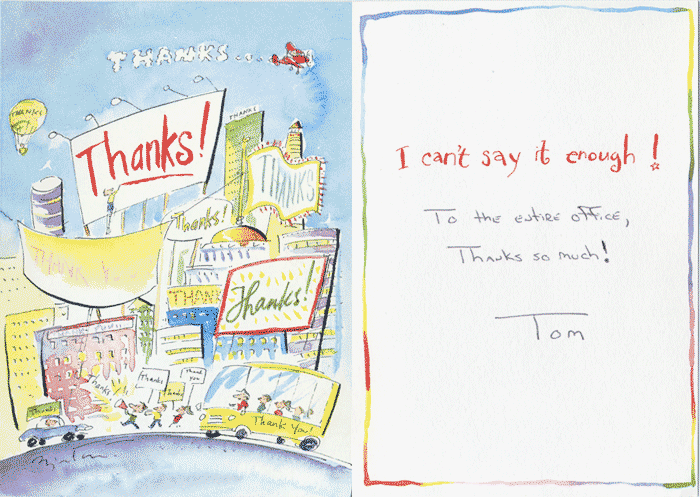 THANKS....
THANKS
THANKS
Thanks!
THANKS
Thanks!
Thanks!
Thanks
thanks
thank
you
Thanks
thanks
Thanks
Thank You!
I can't say it enough!
To the entire office,
Thanks so much!
Tom